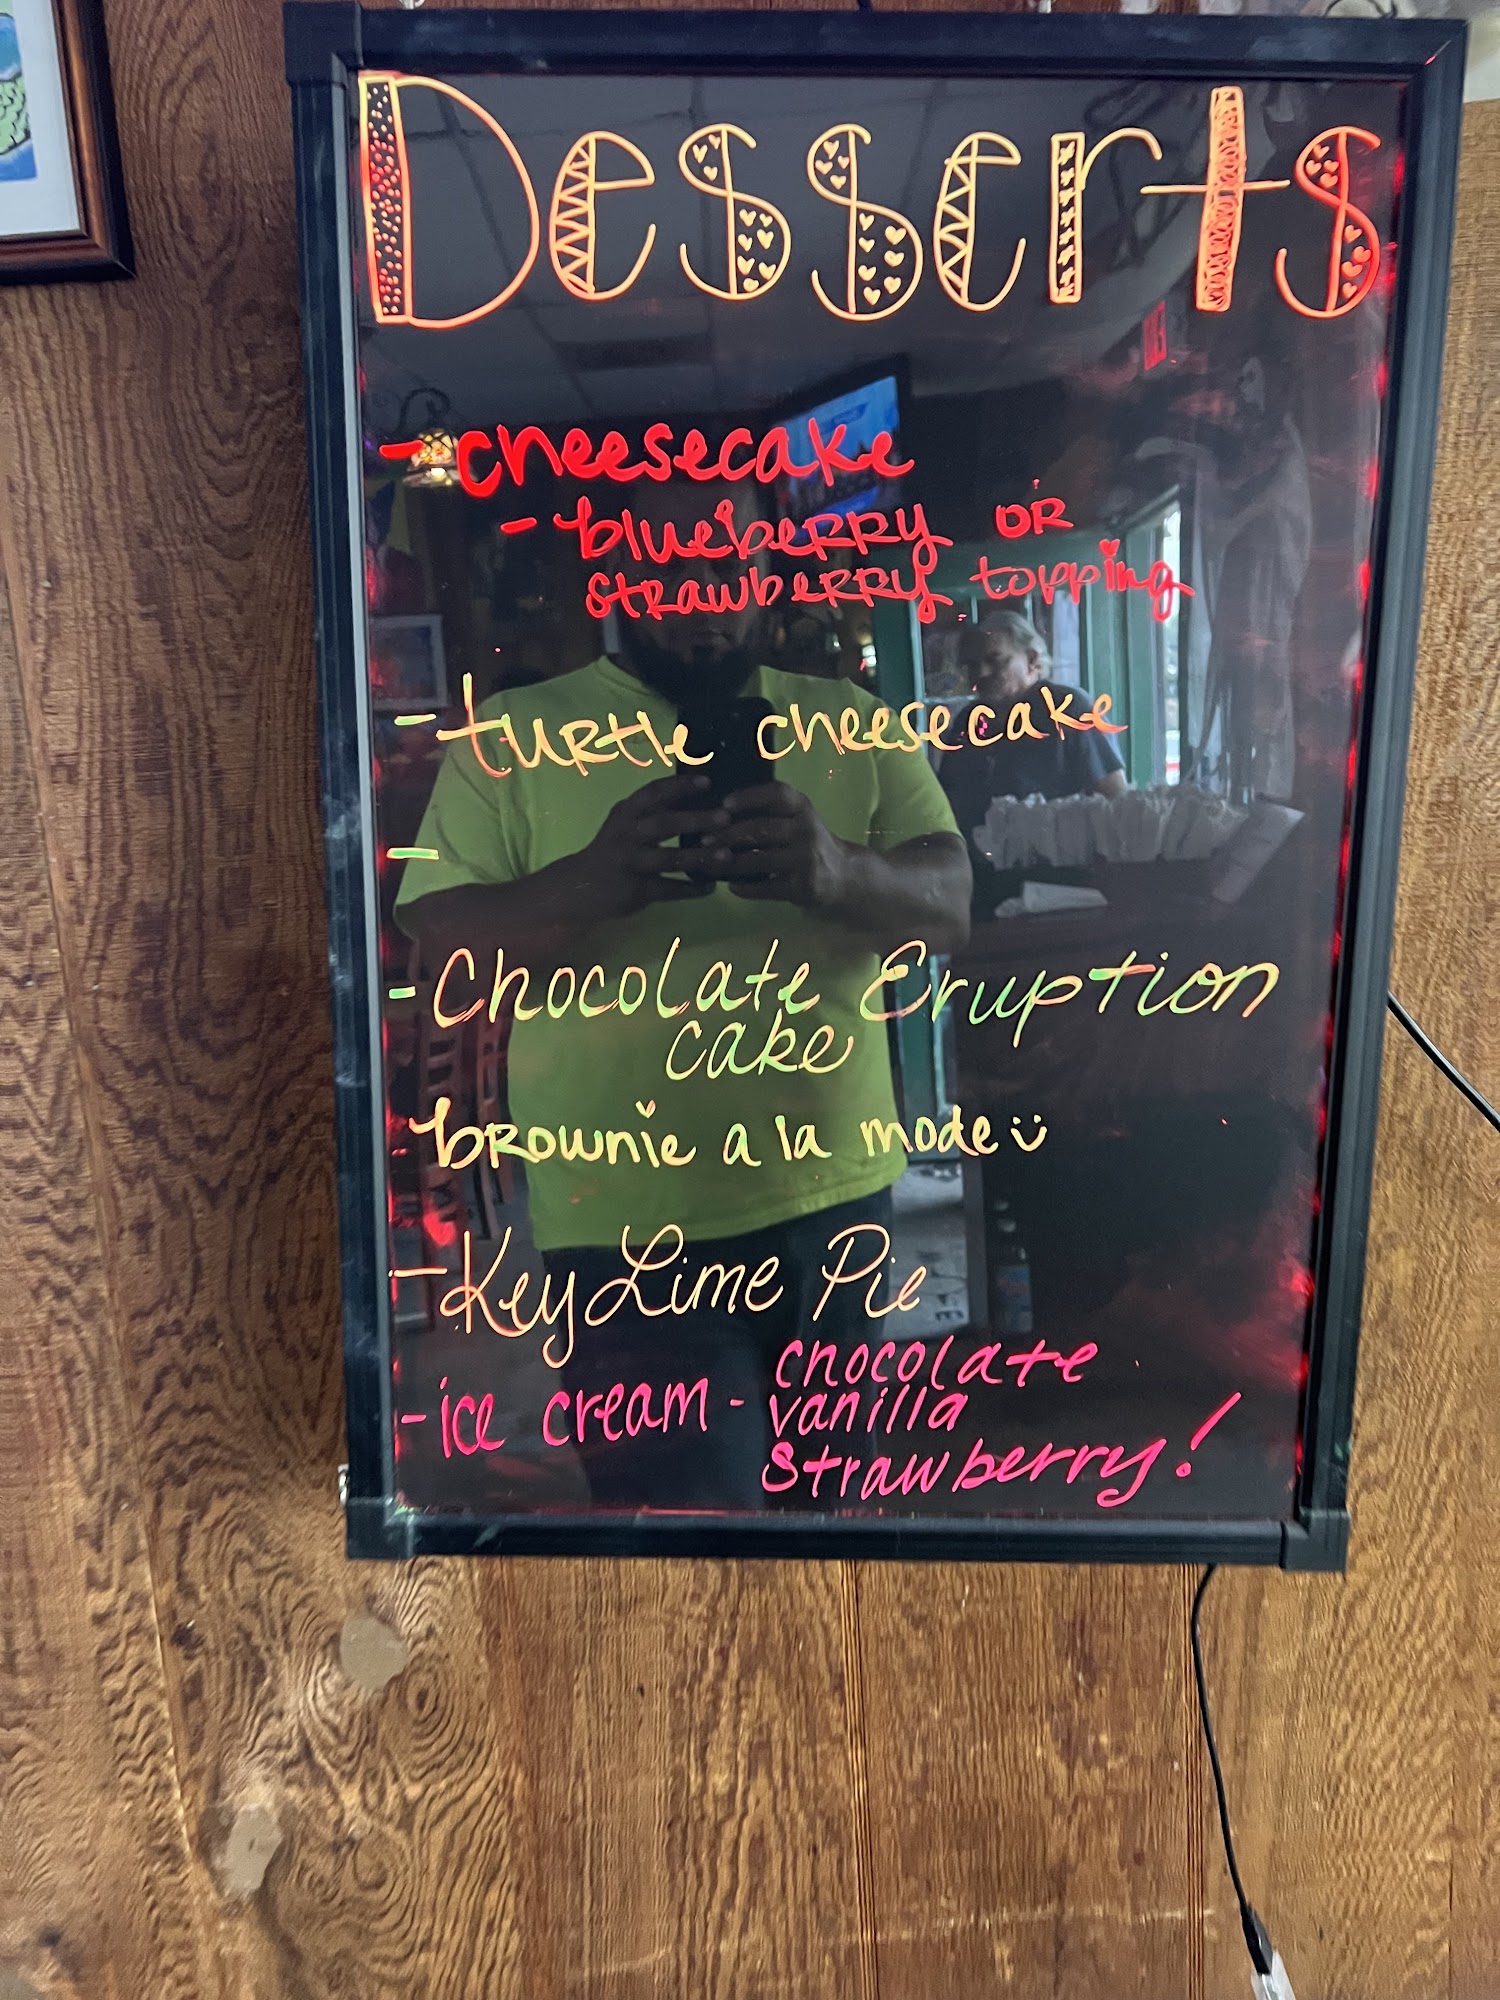 Desserts
- cheesecake
- blueberry OR
strawberry topping
- turtle cheesecake
-
- Chocolate Eruption
cake
brownie a la mode
- Key Lime Pie
- ice cream - chocolate
vanilla
strawberry!